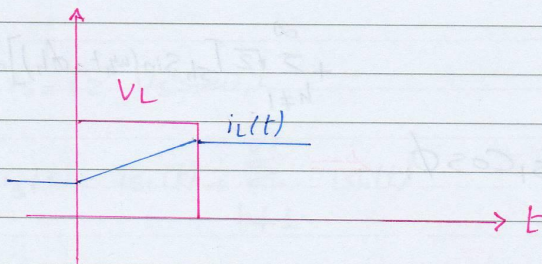 VL
iL(t)
t